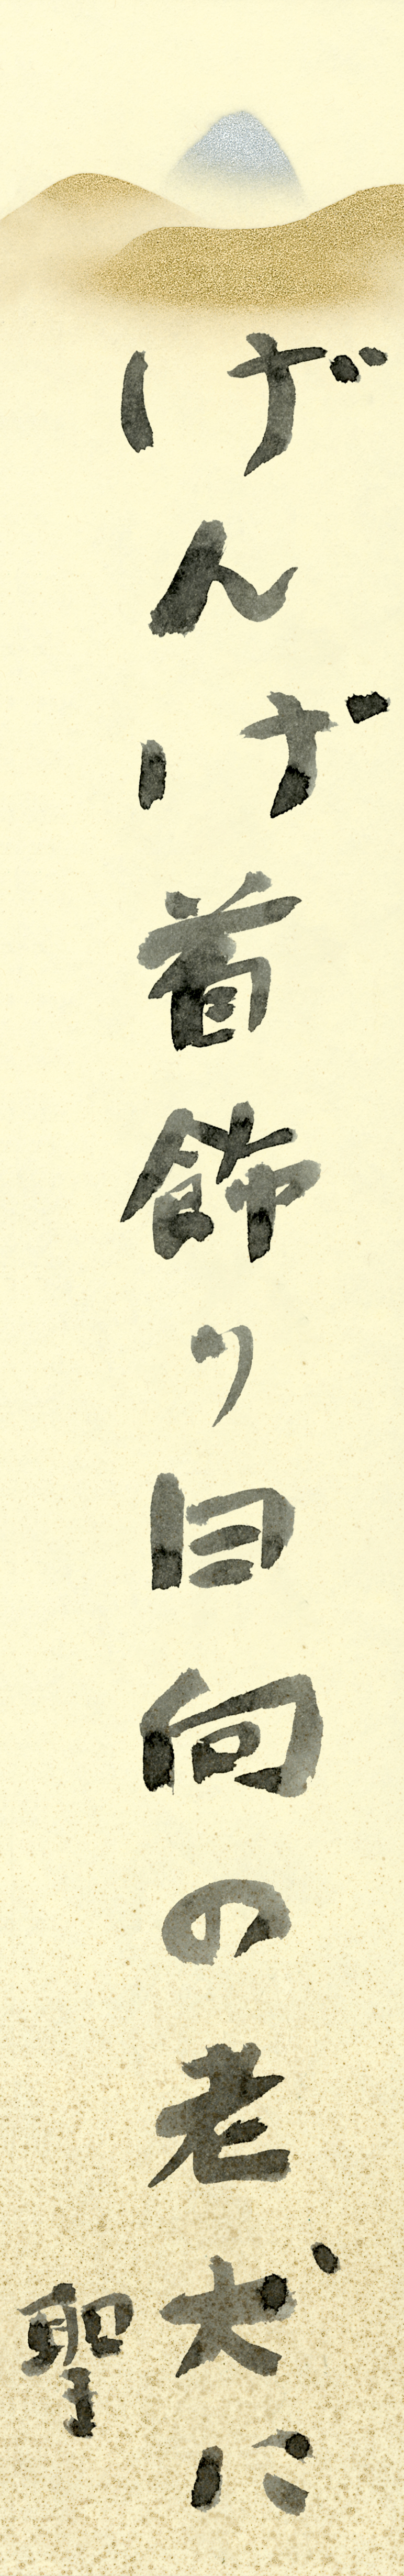 げんげ首飾り日向の老犬に
聖